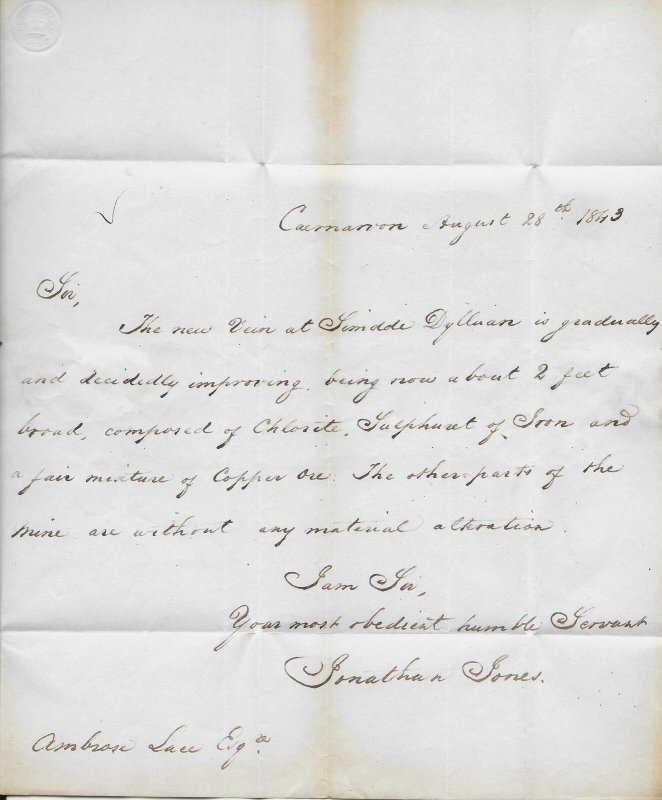 Caernarvon August 28th 1843
Sir,
The new Vein at Simdde Dylluan is gradually
and decidedly improving, being now about 2 feet
broad, composed of Chlorite, Sulphuret of Iron and
a fair mixture of Copper Ore. The other parts of the
mine are without any material alteration.
I am Sir,
Your most obedient humble Servant
Jonathan Jones.
Ambrose Lace Esqre.